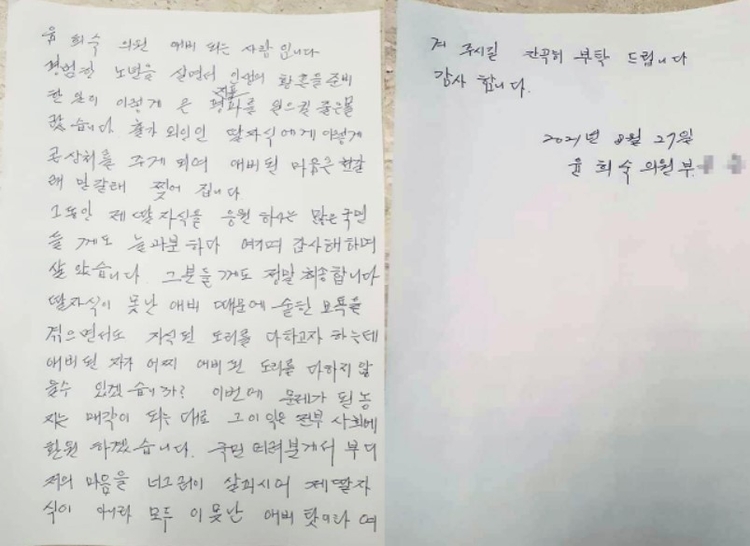 윤 희숙 의원 애비 되는 사람 입니다
평범한 노년을 살면서 인생의 황혼을 준비
한 일이 이렇게 큰 평지 풍파를 일으킬 줄은몰
랐습니다. 출가 외인인 딸자식에게 이렇게
큰상처를 주게 되여 애비된 마음은 천갈
래 만갈래 찢어 집니다
그동안 제 딸자식을 응원 하시는 많은국민
들 께도 늘과분하다 여기며 감사해하며
살았습니다. 그분들께도 정말 죄송합니다
딸자식이 못난 애비 때문에 숱한 모욕을
겪으면서도 자식된 도리를 다하고자 하는데
애비된 자가 어찌 애비된 도리를 다하지 않
을수 있겠습니까? 이번에 문제가 된 농
지는 매각이 되는 대로 그 이익은 전부 사회에
환원 하겠습니다. 국민 여러분께서 부디
저의 마음을 너그러이 살피시어 제 딸자
식이 아니라 모두 이못난 애비 탓이라 여
겨 주시길 간곡히 부탁 드립니다
감사 합니다.
2021년 8월 27일
윤 희숙 의원부